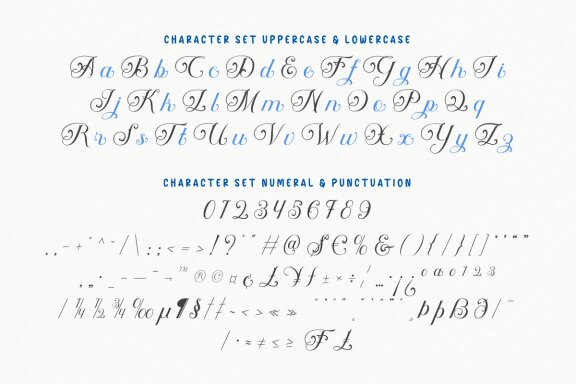 CHARACTER SET UPPERCASE & LOWERCASE
A a B b C c D d E e F f G g H h I i
J j K k L l M m N n O o P p Q q
R r S s T t U u V v W w X x Y y Z z
CHARACTER SET NUMERAL & PUNCTUATION
0 1 2 3 4 5 6 7 8 9
. , - + * ^ ~ / \ | : ; < = > ! ? ' " # @ $ € % & ( ) { / } [ ] ‘ ’ “ ”
‚ „ · _ – — ¨ ¬ ™ ® © ¤ ¢ £ ¥ ƒ ± × ÷ / … ¡ ¿ º ª º 1 2 3
/ ¼ ½ ¾ ‰ µ ¶ § ~ < > « »
þ p ß ð / ¯
/ · ≈ ≠ ≤ ≥ ₣ ₤